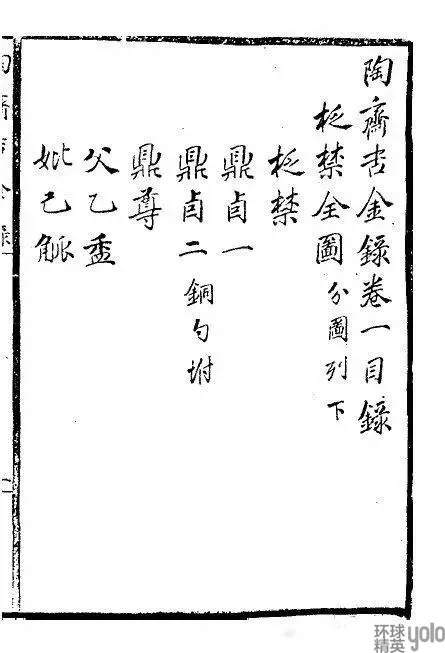 陶齋吉金錄卷一目錄
柉禁全圖 分圖列下
柉禁
鼎卣一
鼎卣二 銅勺坿
鼎尊
父乙盉
妣己觚
陶齋吉金錄
一
环球
精英 yolo